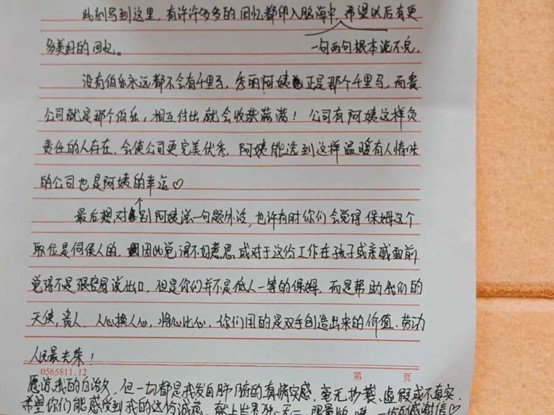 此刻写到这里，有许许多多的回忆都伴入脑海中，希望以后有更
多美好的回忆。
一句两句根本说不完。
没有伯乐永远都不会有千里马，秀丽阿姨正是那个千里马，而贵
公司就是那个伯乐，相互付出就会收获满满！公司有阿姨这样负
责任的人存在，会使公司更完美优秀，阿姨能选到这样温暖有人情味
的公司也是阿姨的幸运♡
最后想对别阿姨说一句题外话，也许有时你们会觉得保姆这个
职位是伺侯人的，因此觉得不好意思，或对于这份工作在孩子或亲戚面前
觉得不是很容易说出口，但是你们并不是低人一等的保姆，而是帮助我们的
天使，贵人，人心换人心，将心比心，你们用的是双手创造出来的价值，劳动
人民最光荣！
0565811.12 第 页
原谅我的白话文，但一切都是我发自肝脏的真情实感，毫无抄袭、虚假或不真实，
希望你们能感受到我的这份诚意